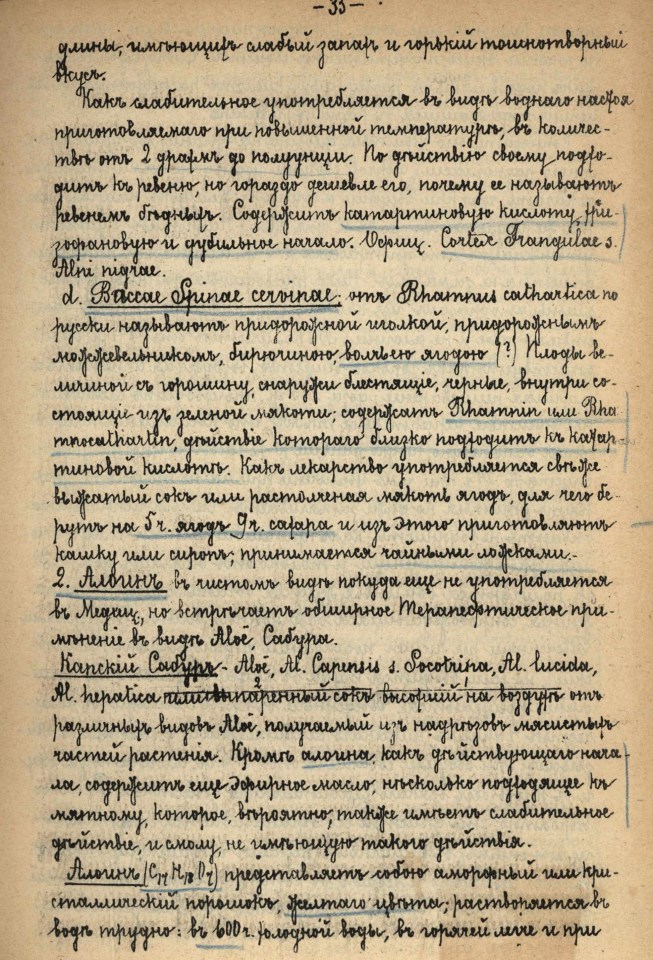 -33-
длины, имѣющихъ слабый запахъ и горькій тошнотворный
вкусъ.
Какъ слабительное употребляется въ видѣ воднаго настоя
приготовляемаго при повышенной температурѣ, въ количес-
твѣ отъ 2 драхмъ до полуунціи. По дѣйствію своему подхо-
дитъ къ ревеню, но гораздо дешевле его, почему ее называютъ
ревенемъ бѣдныхъ. Содержитъ катартиновую кислоту, хри-
зофановую и дубильное начало. Офиц. Cortex Frangulae s.
Alni nigrae.
d. Baccae Spinae cervinae, отъ Rhamnus cathartica по
русски называютъ придорожной иголкой, придорожнымъ
можжевельникомъ, бирючиною, волчьею ягодою (?) Плоды ве-
личиной съ горошину, снаружи блестящіе, черные, внутри со-
стоящіе изъ зеленой мякоти; содержатъ Rhamnin или Rha
mnocathartin, дѣйствіе котораго близко подходитъ къ катар-
тиновой кислотѣ. Какъ лекарство употребляется свѣже
выжатый сокъ или растолченая мякоть ягодъ, для чего бе-
рутъ на 5 ч. ягодъ 9 ч. сахара и изъ этого приготовляютъ
кашку или сиропъ; принимается чайными ложками.-
2. Алоинъ въ чистомъ видѣ покуда еще не употребляется
въ Медиц., но встрѣчаетъ обширное Терапевтическое при-
мѣненіе въ видѣ Aloë, Сабура.
Капскій Сабуръ - Aloë, Al. Capensis s. Socotrina, Al. lucida,
Al. hepatica или выпаренный сокъ высохшій на воздухѣ отъ
различныхъ видовъ Aloe, получаемый изъ надрѣзовъ мясистыхъ
частей растенія. Кромѣ алоина, какъ дѣйствующаго нача-
ла, содержитъ еще эфирное масло, нѣсколько подходящее къ
мятному, которое, вѣроятно, также имѣетъ слабительное
дѣйствіе, и смолу, не имѣющую такого дѣйствія.
Алоинъ (C17 H18 O7) представляетъ собою аморфный или кри-
сталлическій порошокъ, желтаго цвѣта; растворяется въ
водѣ трудно: въ 600 ч. холодной воды, въ горячей легче и при